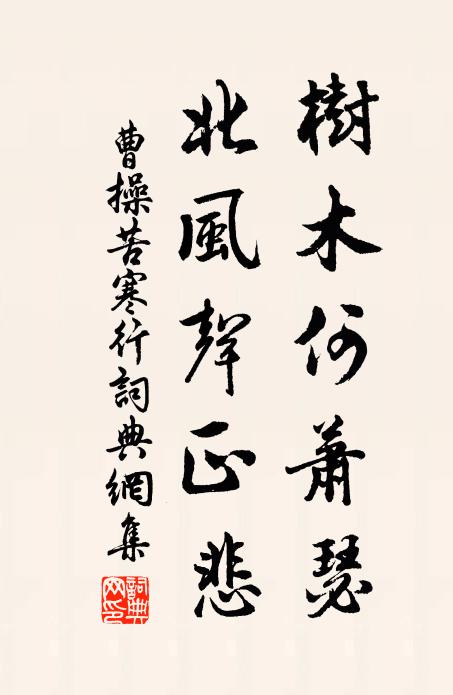 樹木何蕭瑟
北風聲正悲
曹操苦寒行詞典網集
詞典網印